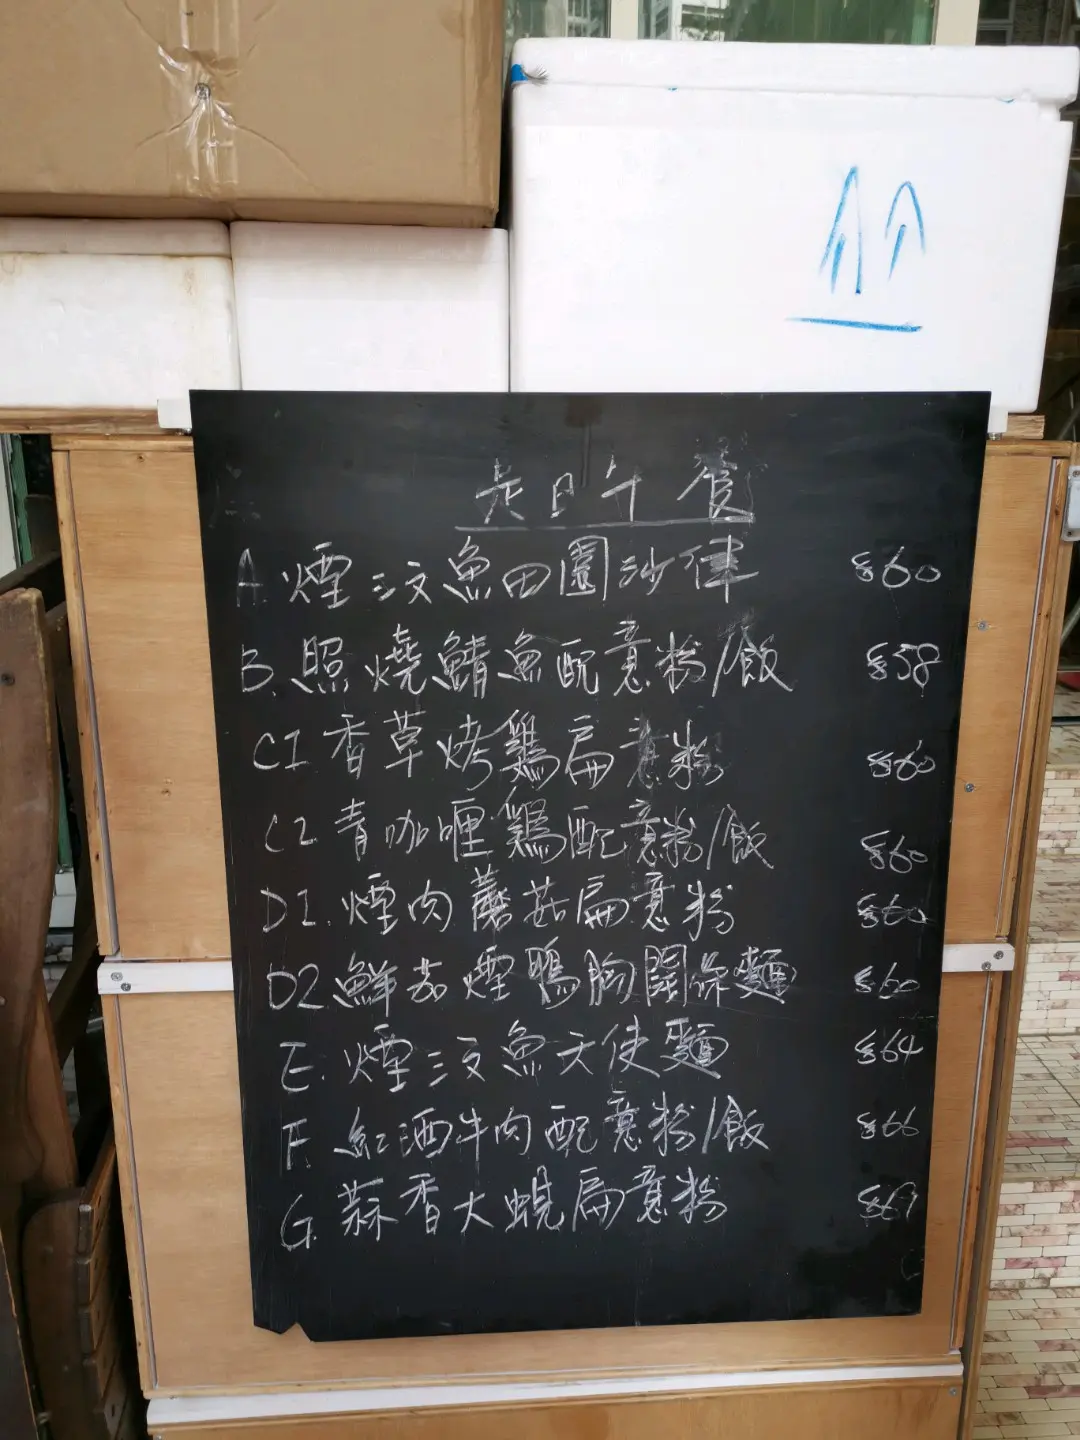 是日午餐
A. 煙三文魚田園沙律 $60
B. 照燒鯖魚配意粉/飯 $58
C1 香草烤鷄扁意粉 $60
C2 青咖喱鷄配意粉/飯 $60
D1. 煙肉蘑菇扁意粉 $60
D2 鮮茄煙鴨胸闊條麵 $60
E. 煙三文魚天使麵 $64
F. 紅酒牛肉配意粉/飯 $66
G. 蒜香大蜆扁意粉